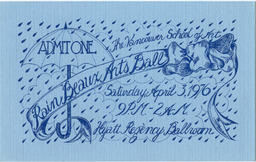 ADMIT ONE
The Vancouver School of Art
Rain Beaux Arts Ball
Saturday April 3, 1976
9 PM - 2 AM
Hyatt Regency Ballroom